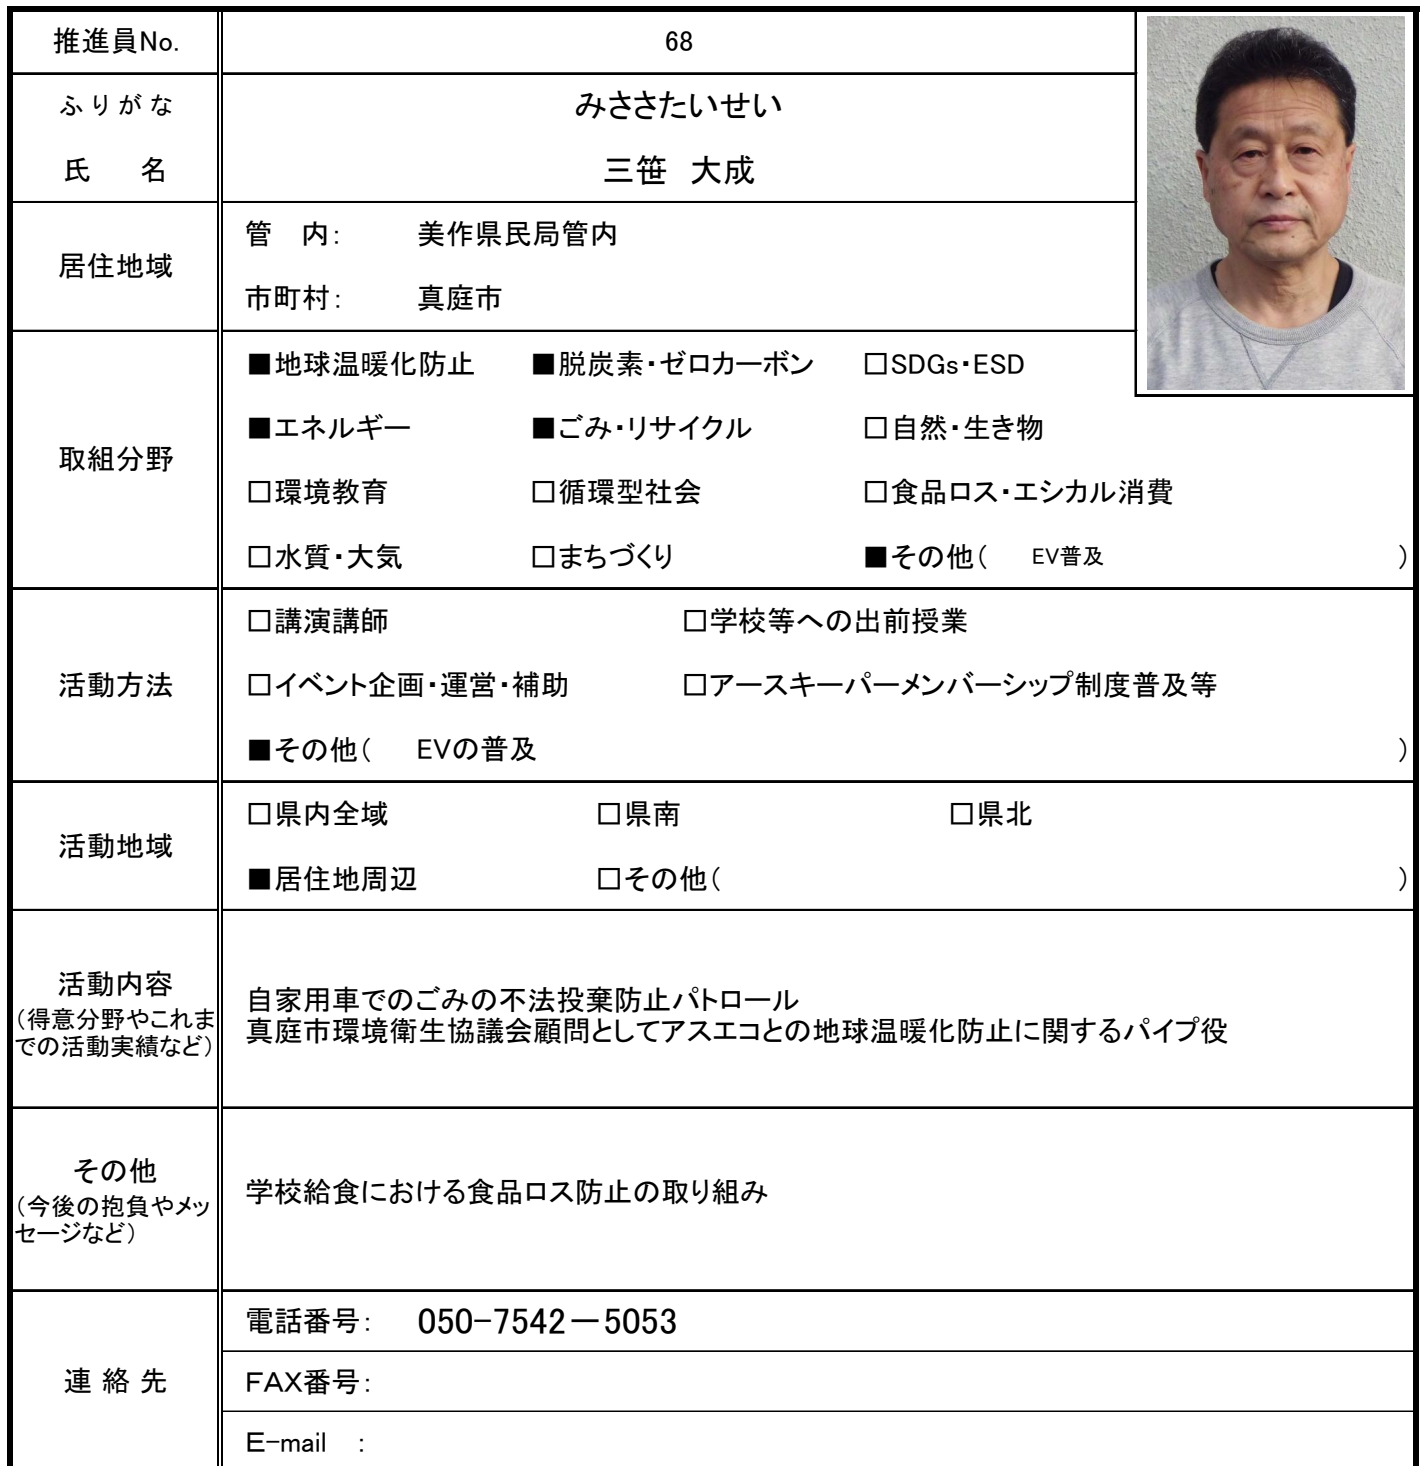 推進員No. 68
ふりがな みささたいせい
氏　名 三笹　大成
居住地域
管　内： 美作県民局管内
市町村： 真庭市
取組分野
■地球温暖化防止 ■脱炭素・ゼロカーボン □SDGs・ESD
■エネルギー ■ごみ・リサイクル □自然・生き物
□環境教育 □循環型社会 □食品ロス・エシカル消費
□水質・大気 □まちづくり ■その他（ EV普及 ）
活動方法
□講演講師 □学校等への出前授業
□イベント企画・運営・補助 □アースキーパーメンバーシップ制度普及等
■その他（ EVの普及 ）
活動地域
□県内全域 □県南 □県北
■居住地周辺 □その他（ ）
活動内容
（得意分野やこれま
での活動実績など）
自家用車でのごみの不法投棄防止パトロール
真庭市環境衛生協議会顧問としてアスエコとの地球温暖化防止に関するパイプ役
その他
（今後の抱負やメッ
セージなど）
学校給食における食品ロス防止の取り組み
連絡先
電話番号： 050-7542－5053
FAX番号：
E-mail ：